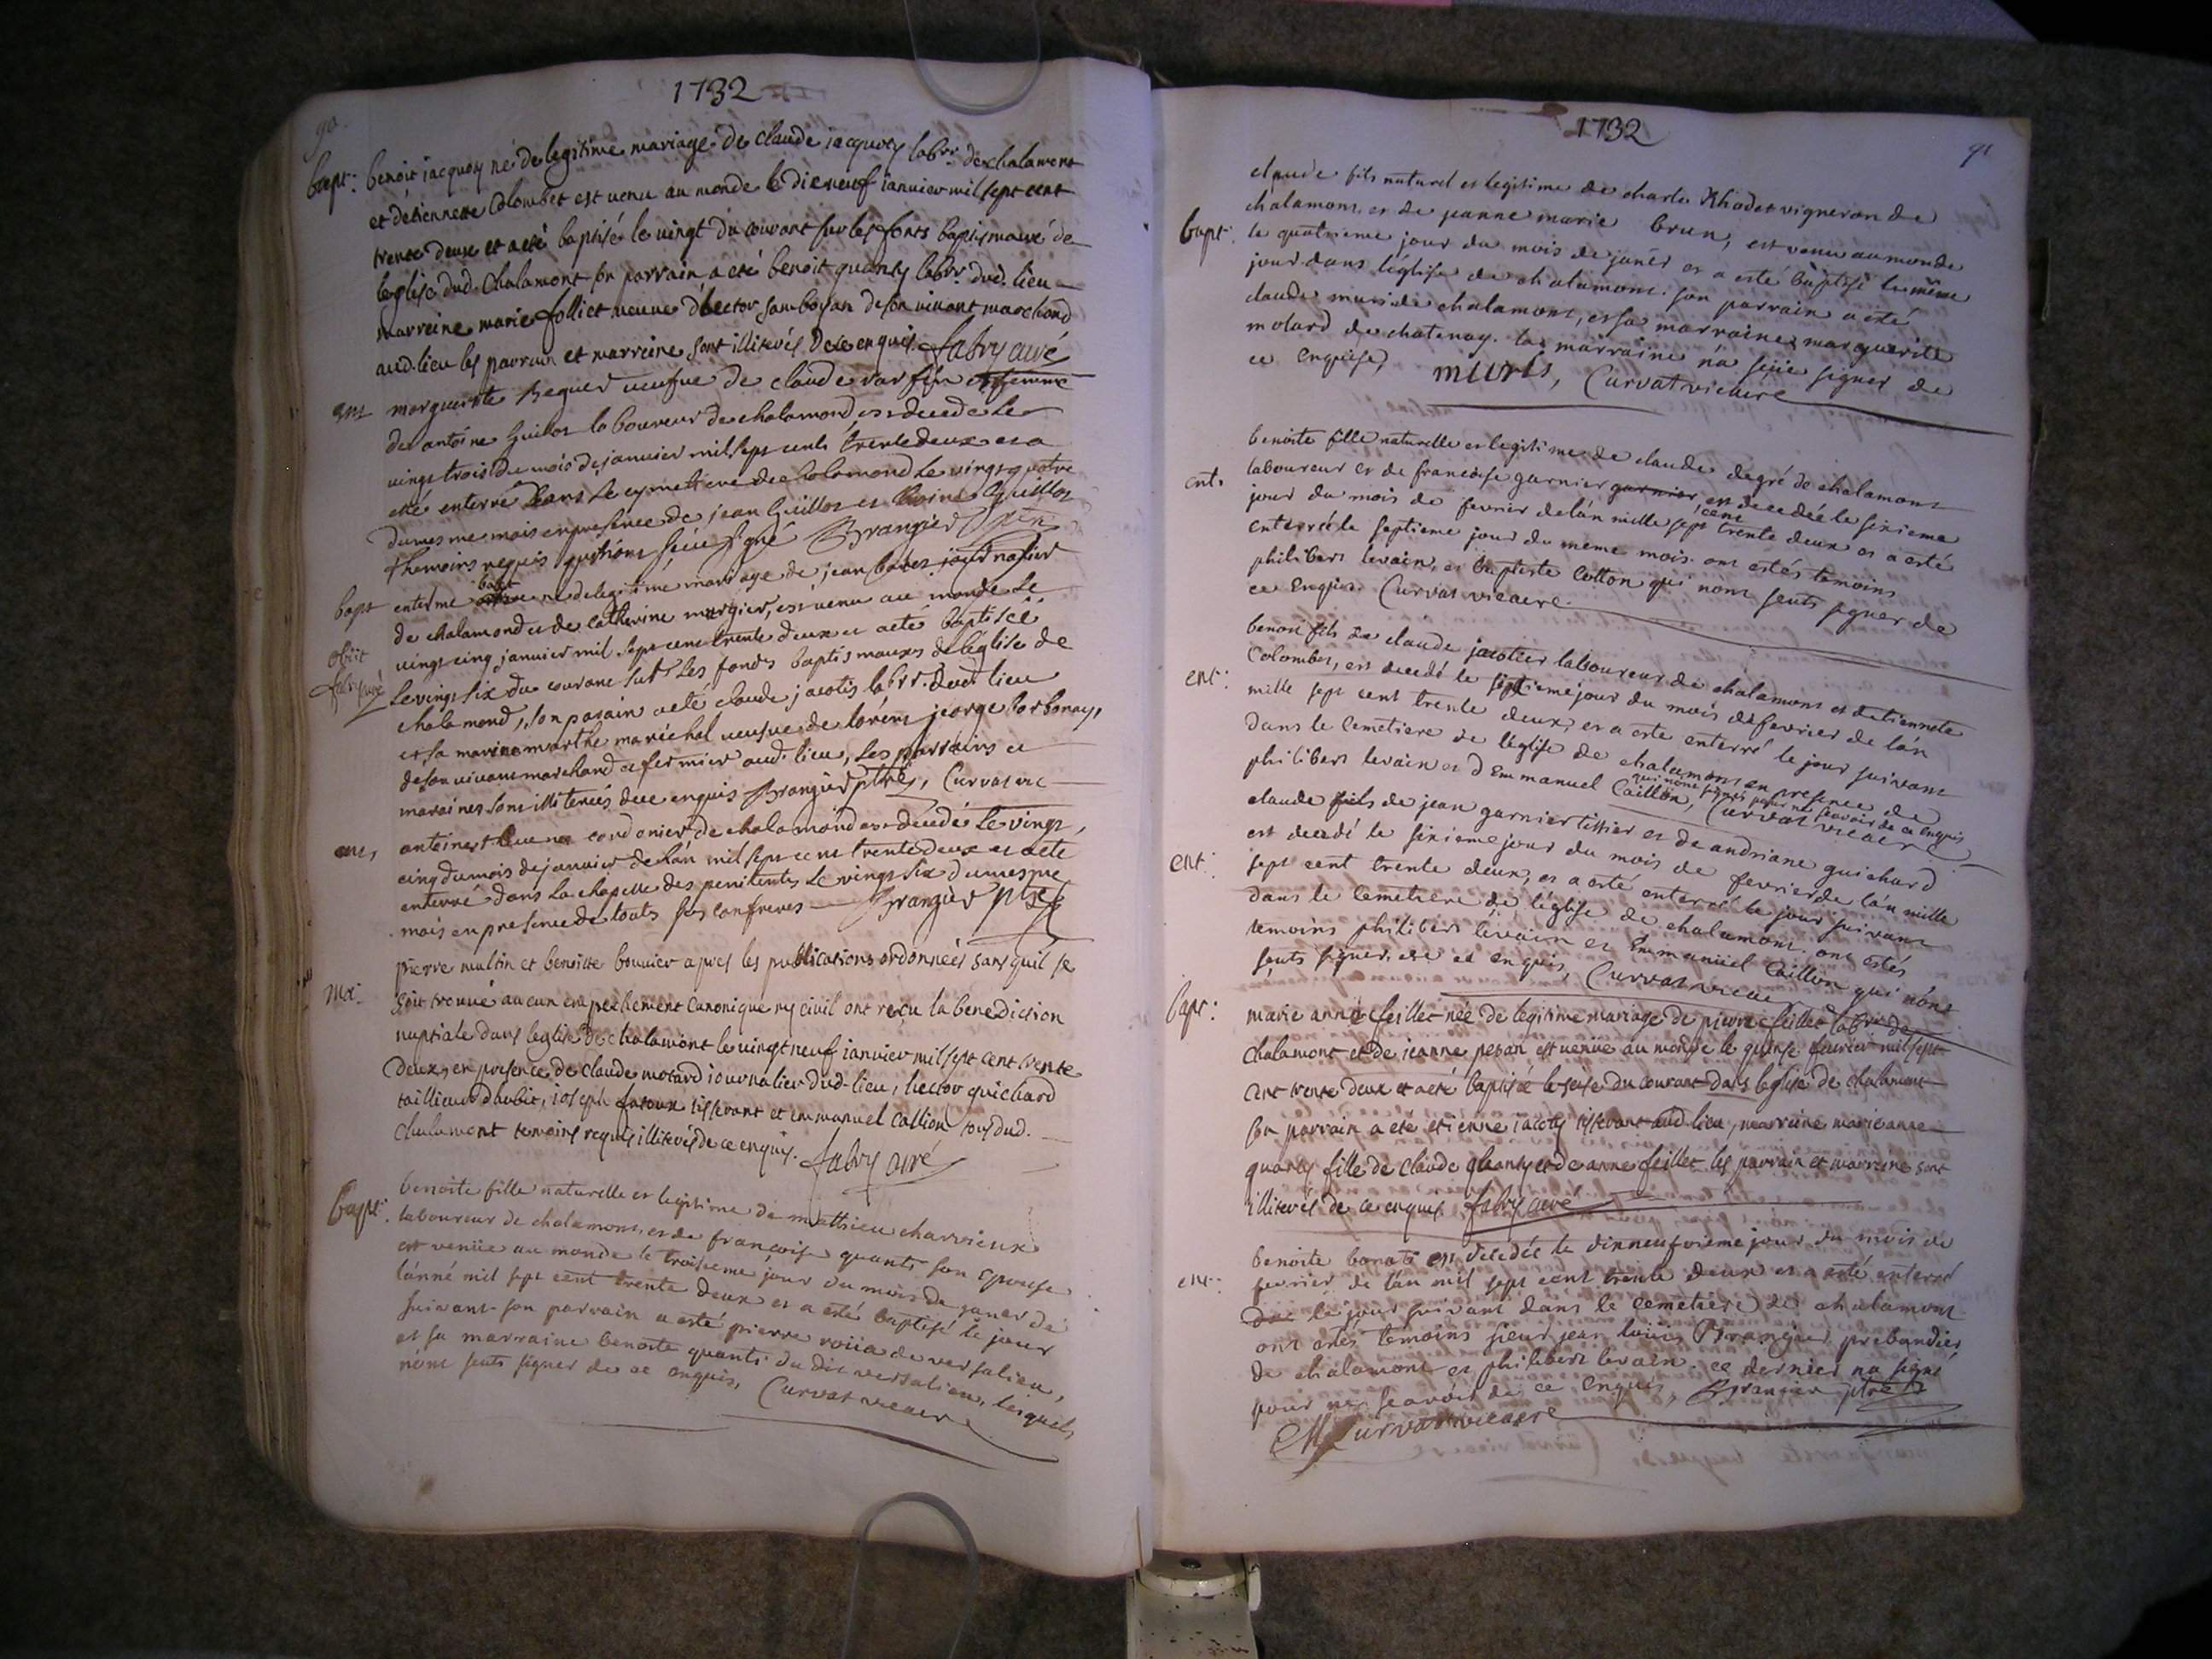 1732
90.
bapt: benoit jacquoty né de legitime mariage de claude jacquoty labr. de chalamont
et détiennette Colombet est venu au monde le dixneuf ianvier mil sept cent
trente deux et a eté baptisé le vingt du courant sur les fonts baptismaux de
leglise dud. Chalamont son parrain a eté benoit quanty labr. dud. lieu
marreine marie folliet veuve d'hector sambogan de son vivant marchand
aud. lieu les parrain et marreine sont illiterés de ce enquis. fabry curé
ent marguerite veufve de claude
de antoine Guillot laboureur de chalamond est decede le
vingt trois du mois de janvier mil sept cents trente deux et a
eté enterré dans le cymetiere de chalamond le vingt quatre
du mesme mois en presence de jean Guillot et Guillot
themoins requis Brangier ptre
bapt entelme batet né de legitime mariage de jean batet journalier
de chalamond et de catherine murgier, est venu au monde le
vingt cinq janvier mil sept cent trente deux et a eté baptisé
obiit
fabry curé
le vingt six du courant sur les fonds baptismaux de léglise de
chalamond, son parain a eté claude jacotis labrr. dud. lieu
et sa maraine marthe maréchal veufve de jeorge
de son vivant marchand et fermier aud. lieu, les parrains et
maraines sont illiterés de ce enquis Brangier ptre, Curvat vic
ent, antoine cordonier de chalamond est decedé le vingt
cinq du mois de janvier de lán mil sept cent trente deux et a eté
enterré dans la chapelle des penitents le vingt six du mesme
mois en presence de touts ses confreres Brangier ptre
pierre multin et benoitte bouvier apres les publications ordonneés sans quil se
Ma: soit trouvé aucun empechement canonique ny civil ont reçu la benediction
nuptiale dans leglise de chalamont le vingt neuf ianvier mil sept cent trente
deux, en presence de claude motard iournalier dud-lieu, hector quichard
taillieur dhabit, ioseph tisserant et emmanuel Callion tous dud.
Chalamont temoins requis illiterés de ce enquis. fabry curé
bapt: benoite fille naturelle et legitime de matthieu charvieux
laboureur de chalamont, et de françoise quanti son epouse
est venüe au monde le troisieme jour du mois de janer de
lánné mil sept cent trente deux et a esté baptisé le jour
suivant. son parrain a esté pierre de versalieu,
et sa marraine benoite quanti du dit versalieu, lesquels
nónt sçuts signer de ce enquis, Curvat vicaire
1732
91
claude fils naturel et legitime de charle Rhodet vigneron de
chalamont, et de jeanne marie brun, est venu au monde
bapt: le quatrieme jour du mois de janer et a esté baptisé le méme
jour dans léglise de chalamont. son parrain a esté
claude muris de chalamont, et sa marraine marguerite
motard de chatenay. la marraine ná sçüe signer de
ce enquise, muris, Curvat vicaire
benoite fille naturelle et legitime de claude degré de chalamont
ent. laboureur et de francoise garnier garnier est decedée le sixieme
jour du mois de fevrier de lán mille sept cent trente deux et a esté
enterré le septieme jour du meme mois. ont estés temoins
philibert levain, et baptiste cotton qui nont sçuts signer de
ce enquis. Curvat vicaire.
benoit fils de claude jacotier laboureur de chalamont et détiennete
ent: Colombet, est decedé le septieme jour du mois de fevrier de lán
mille sept cent trente deux, et a esté enterré le jour suivant
dans le cemetiere de léglise de chalamont en presence de
philibert levain et d Emmanuel Caillon, qui nónt signés pour ne sçavoir de ce enquis
Curvat vicaire
claude fiels de jean garnier tissier et de andriane guichard
est decedé le sixieme jour du mois de fevrier de lán mille
ent: sept cent trente deux, et a esté enterré le jour suivant
dans le cemetiere de léglise de chalamont. ont estés
temoins philibert levain et Emmanüel Caillon qui nónt
sçuts signer. de ce enquis, Curvat vicaire
bapt: marie anne feillet née de legitime mariage de pierre feillet labr de
chalamont et de ieanne pesan est venüe au monde le quinse fevrier mil sept
cent trente deux et a eté baptisée le seise du courant dans leglise de chalamont
son parrain a eté etienne iacoty tisserant aud. lieu, marreine marie anne
quanty fille de claude quanty et de anne feillet les parrain et marreine sont
illiterés de ce enquis fabry curé
benoite est decedée le dixneufvieme jour du mois de
ent: fevrier de lán mil sept cent trente deux et a esté enterré
le jour suivant dans le cemetiere de chalamont
ont estés temoins sieur jean loüis Brangier prebandier
de chalamont et philibert levain. ce dernier na signé
pour ne sçavoir de ce enquis, Brangier ptre
Curvat vicaire